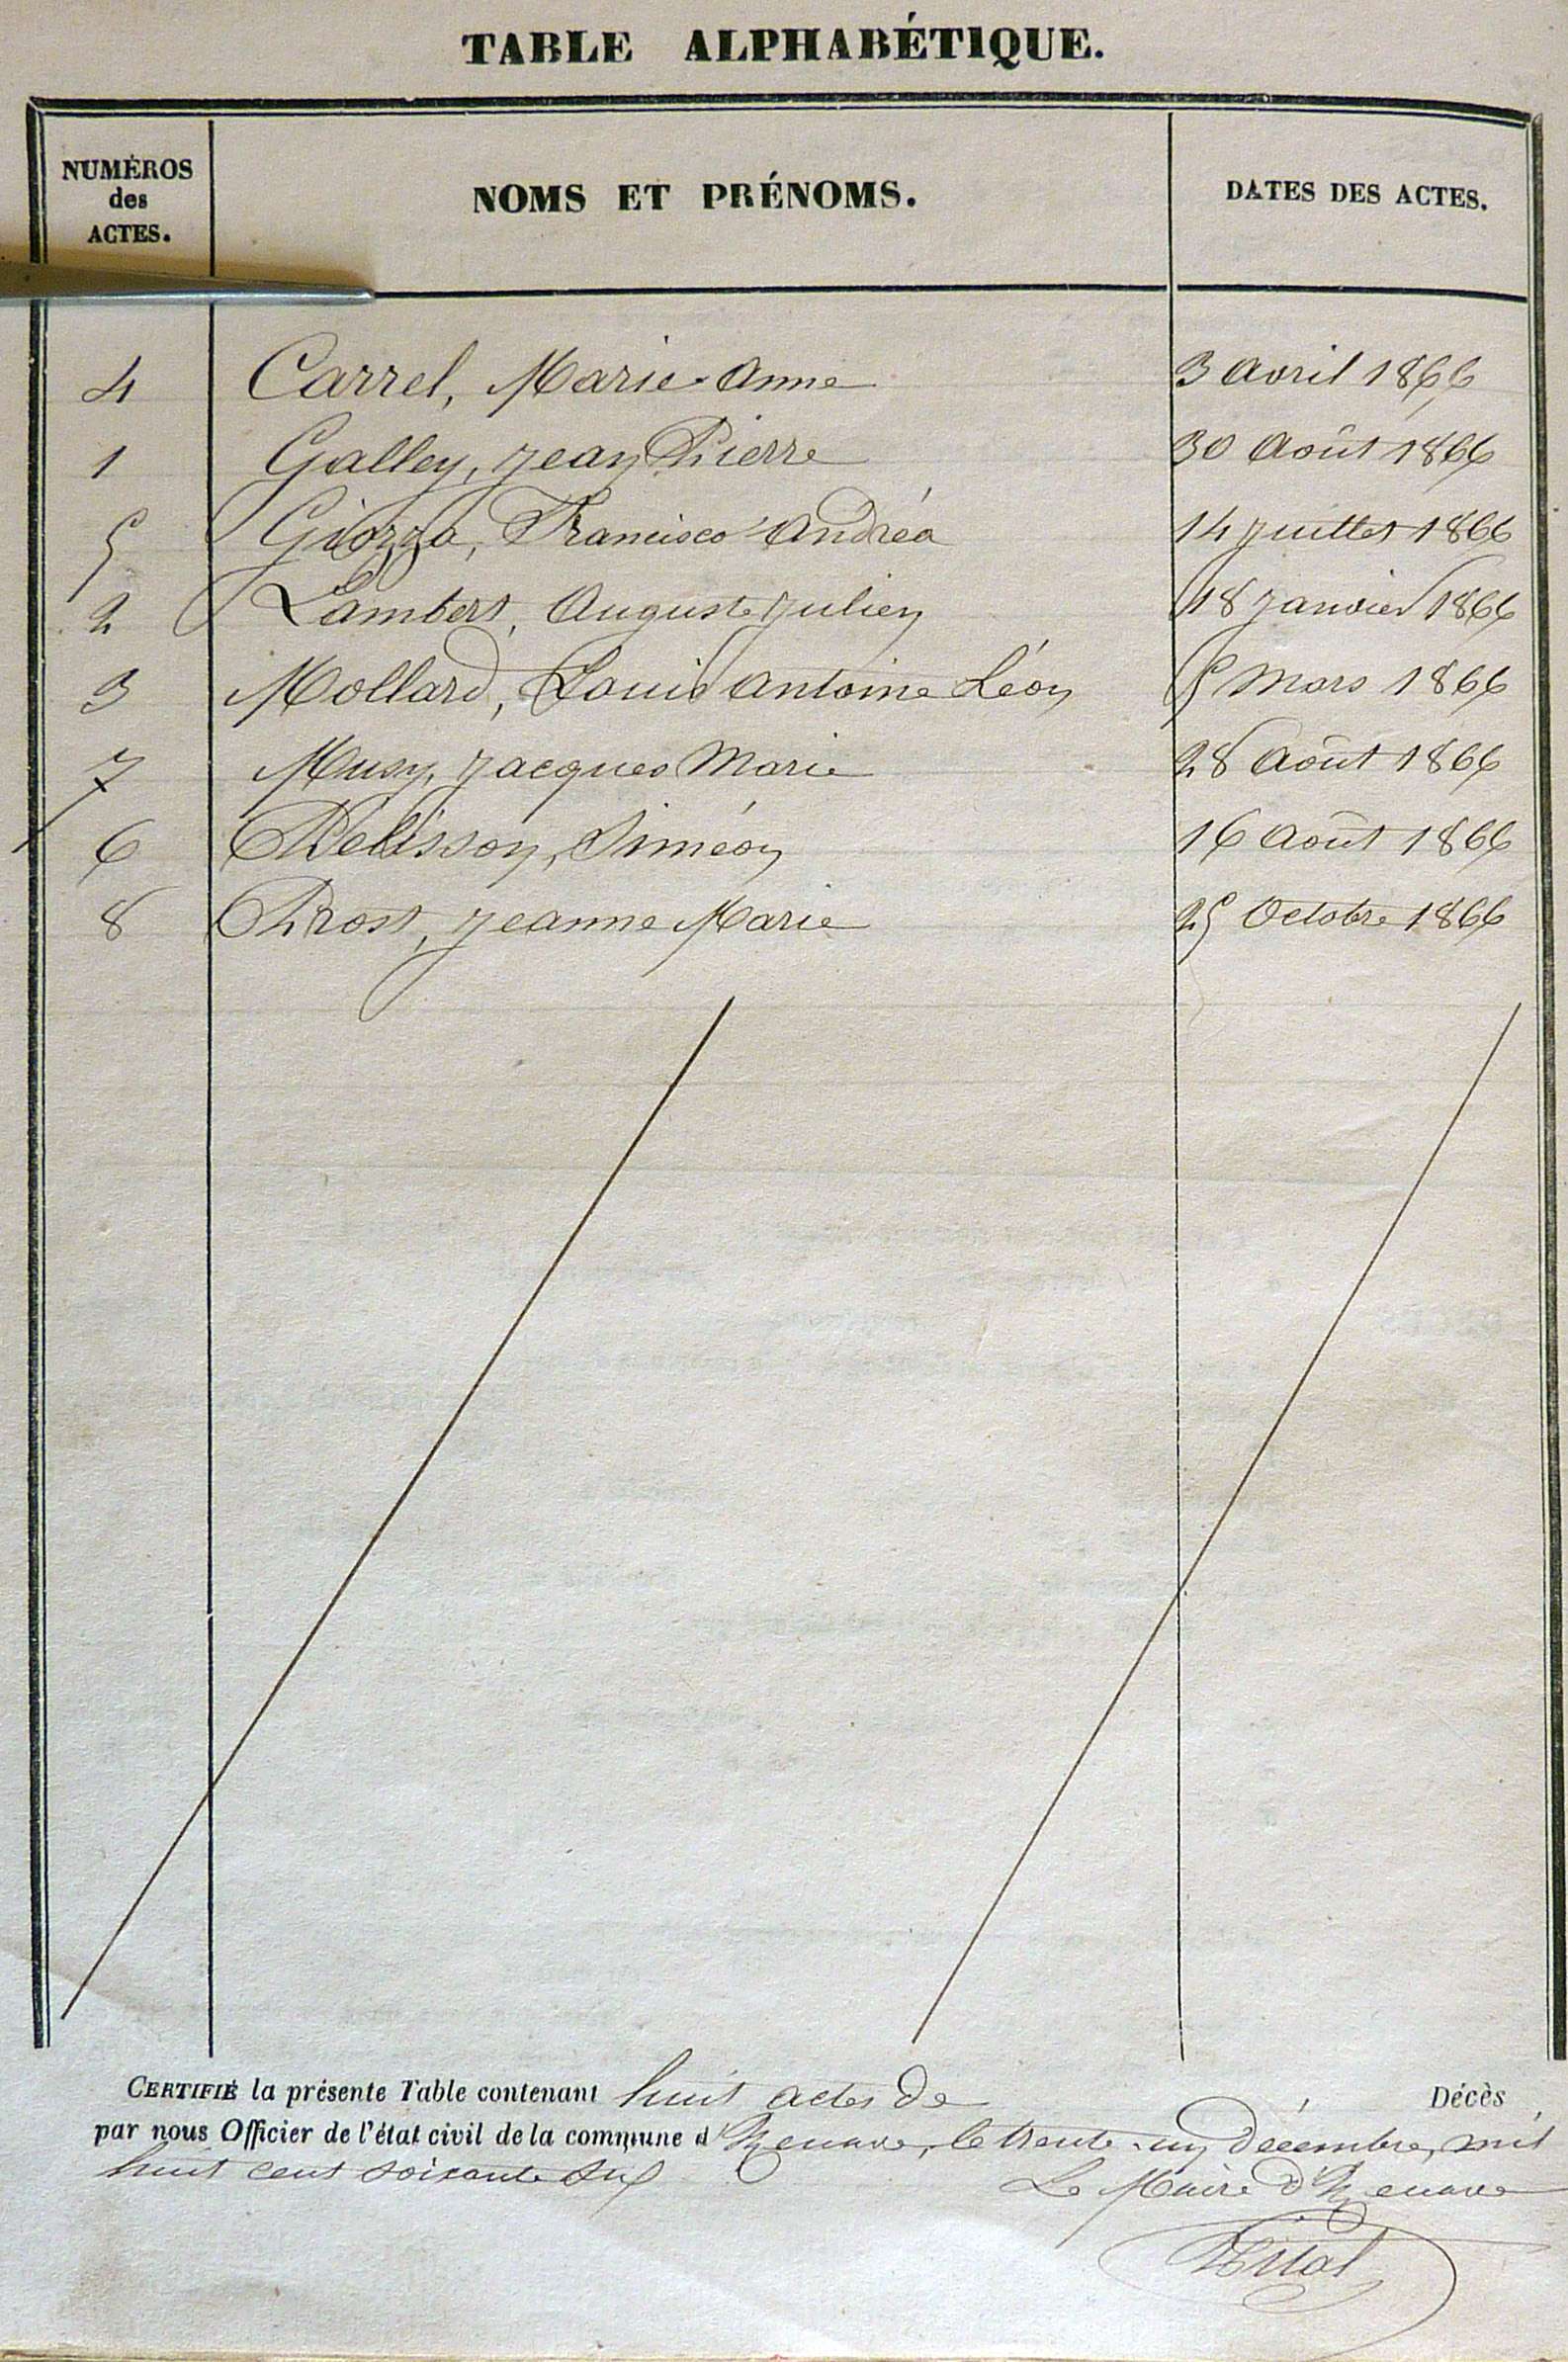 TABLE ALPHABÉTIQUE.
NUMÉROS des ACTES. NOMS ET PRÉNOMS. DATES DES ACTES.
4 Carrel, Marie-Anne 3 Avril 1866
1 Galley, Jean Pierre 30 Août 1866
5 Giozza, Francisco Andréa 14 Juillet 1866
2 Lambert, Auguste Julien 18 Janvier 1866
3 Mollard, Louis Antoine Léon 5 Mars 1866
7 Musy, Jacques Marie 28 Août 1866
6 Pélisson, Siméon 16 Août 1866
8 Prost, Jeanne Marie 25 Octobre 1866
CERTIFIÉ la présente Table contenant huit actes de Décès
par nous Officier de l'état civil de la commune d' le trente-un décembre, mil
huit cent soixante six
Le Maire